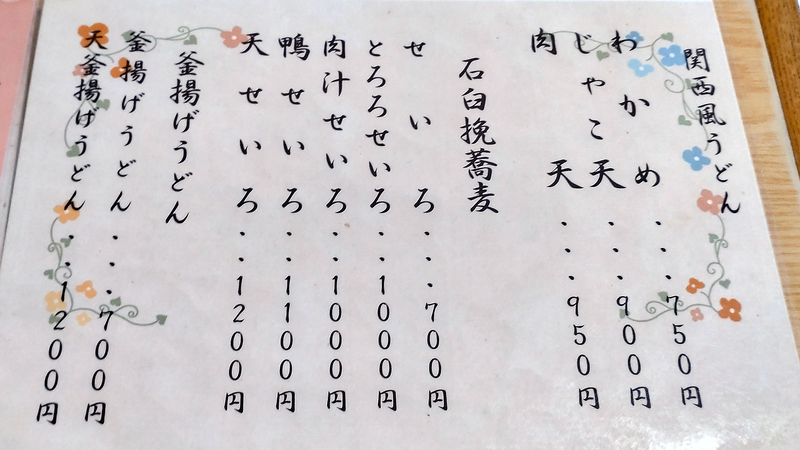 関西風うどん
わかめ・・・750円
じゃこ天・・・900円
肉天・・・950円
石臼挽蕎麦
せいろ・・・700円
とろろせいろ・・1000円
肉汁せいろ・・1000円
鴨せいろ・・1100円
天せいろ・・1200円
釜揚げうどん
釜揚げうどん・・・700円
天釜揚げうどん・・1200円